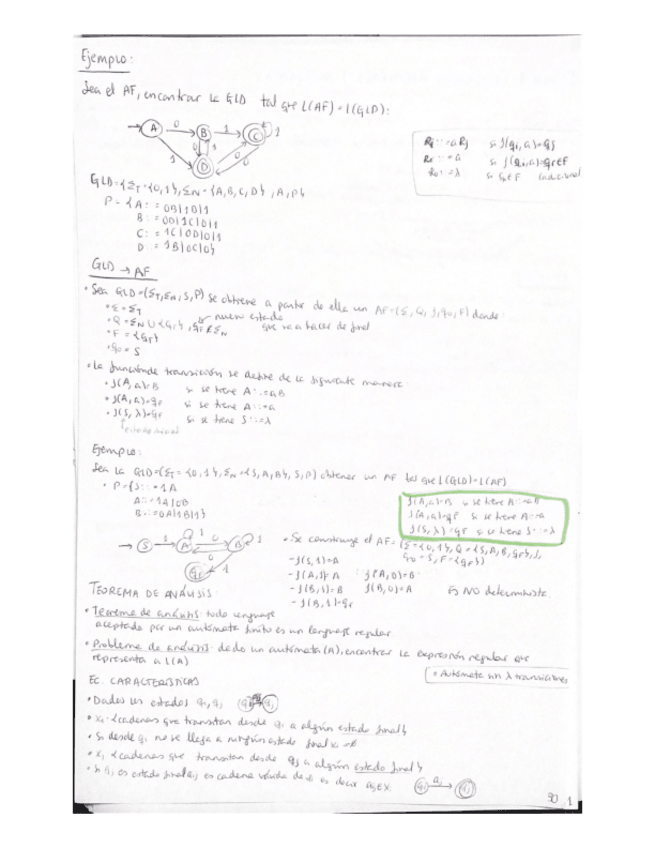 Ejemplo:
Sea el AF, encontrar la GLD tal que L(AF) = L(GLD):
A 0 B 1 C 1
1 0 1 0 0
D
si f(qi,a)=qj
::=a si f(qi,a)=qf∈F
::=λ si q0∈F
GLD={ΣT={0,1}, ΣN={A,B,C,D}, A, P}
P={A::=0B|1D|1
B::=0D|1C|0|1
C::=1C|0D|0|1
D::=1B|0C|0}
GLD → AF
• Sea GLD=(ΣT,ΣN,S,P) se obtiene a partir de ella un AF=(Σ,Q,f,q0,F) donde:
• Σ=ΣT
nuevo estado
• Q=ΣN∪{qf}, qf∉ΣN que va a hacer de final
• F={qf}
• q0=S
• La función de transición se define de la siguiente manera:
• f(A,a)=B si se tiene A::=aB
• f(A,a)=qf si se tiene A::=a
• f(S,λ)=qf si se tiene S::=λ
Ejemplo:
Sea la GLD=(ΣT={0,1}, ΣN={S,A,B}, S, P) obtener un AF tal que L(GLD)=L(AF)
• P={S::=1A
A::=1A|0B
B::=0A|1B|1}
f(A,a)=B si se tiene A::=aB
f(A,a)=qF si se tiene A::=a
f(S,λ)=qF si se tiene S::=λ
S 1 A 1 0 B 1
0
qf 1
• Se construye el AF=(Σ={0,1}, Q={S,A,B,qf}, f,
q0=S, F={qf})
- f(S,1)=A
- f(A,1)=A f(A,0)=B
- f(B,1)=B f(B,0)=A Es NO determinista.
- f(B,1)=qf
TEOREMA DE ANÁLISIS:
• Teorema de análisis: todo lenguaje
aceptado por un autómata finito es un lenguaje regular.
• Problema de análisis: dado un autómata (A), encontrar la expresión regular que
representa a L(A)
= Autómata sin λ transiciones
EC. CARACTERÍSTICAS
• Dados los estados qi, qj qi qj
• xi={cadenas que transitan desde qi a algún estado final}
• Si desde qi no se llega a ningún estado final
• xj {cadenas que transitan desde qj a algún estado final}
• Si qj es estado final es cadena válida es decir
qi a qj
1